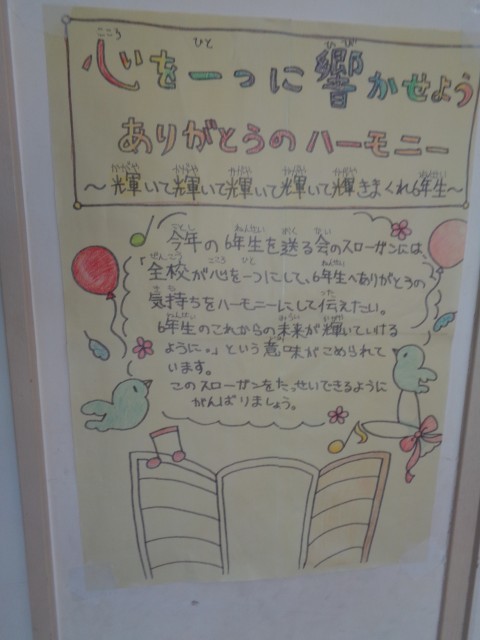 心を一つに響かせよう
ありがとうのハーモニー
～輝いて輝いて輝いて輝いて輝きまくれ6年生～
今年の6年生を送る会のスローガンは、
「全校が心を一つにして、6年生へありがとうの
気持ちをハーモニーにして伝えたい。
6年生のこれからの未来が輝いていける
ように。」という意味がこめられて
います。
このスローガンをたっせいできるように
がんばりましょう。